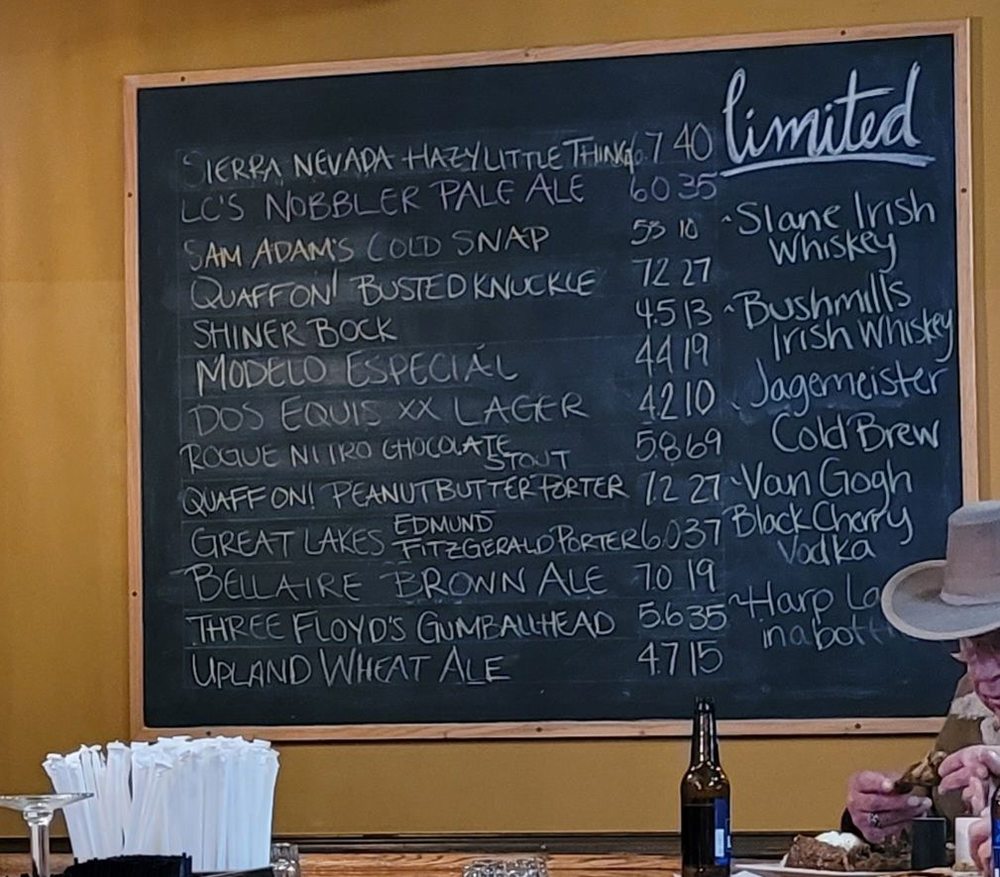 SIERRA NEVADA HAZY LITTLE THING 6.7 40
LC'S NOBBLER PALE ALE 6.0 35
SAM ADAM'S COLD SNAP 5.3 10
QUAFFON! BUSTED KNUCKLE 7.2 27
SHINER BOCK 4.5 13
MODELO ESPECIÁL 4.4 19
DOS EQUIS XX LAGER 4.2 10
ROGUE NITRO CHOCOLATE 5.8 69
STOUT
QUAFFON! PEANUT BUTTER PORTER 7.2 27
EDMUND
GREAT LAKES FITZGERALD PORTER 6.0 37
BELLAIRE BROWN ALE 7.0 19
THREE FLOYD'S GUMBALLHEAD 5.6 35
UPLAND WHEAT ALE 4.7 15
limited
~Slane Irish
Whiskey
~Bushmills
Irish Whiskey
~Jagemeister
Cold Brew
~Van Gogh
Black Cherry
Vodka
~Harp
in a